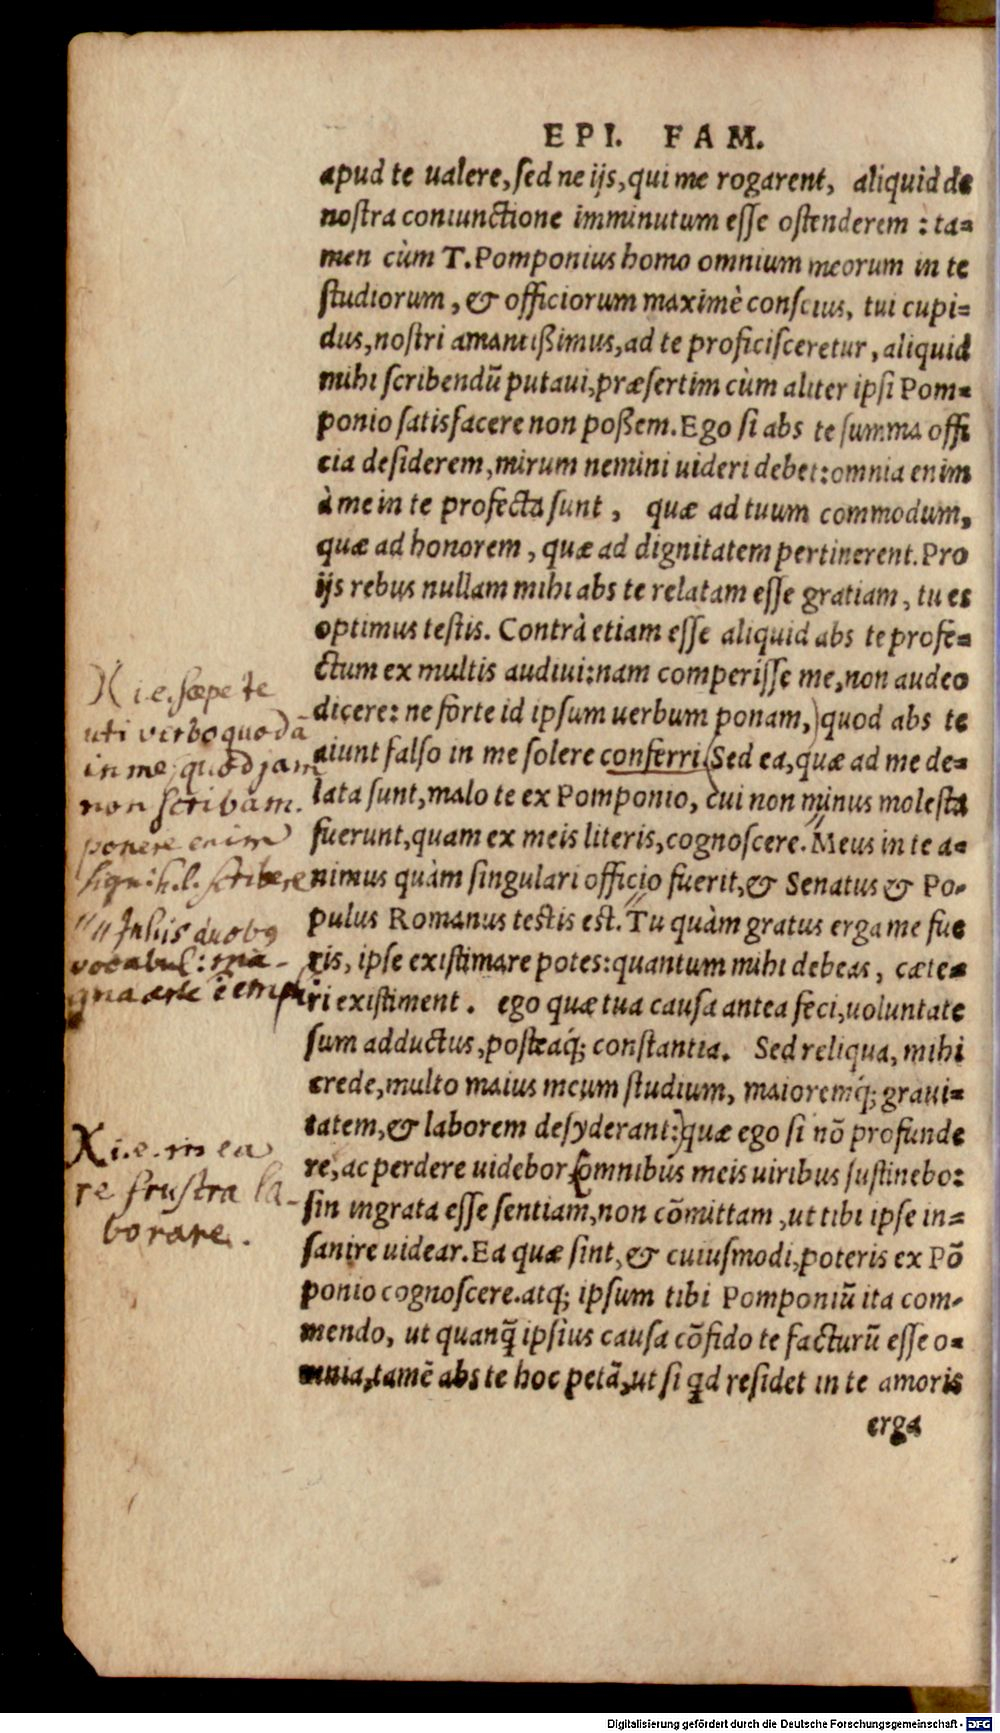 EPI. FAM.
apud te ualere, sed ne ijs, qui me rogarent, aliquid de
nostra coniunctione imminutum esse ostenderem : ta=
men cùm T. Pomponius homo omnium meorum in te
studiorum, & officiorum maximè conscius, tui cupi=
dus, nostri amantißimus, ad te proficisceretur, aliquid
mihi scribendũ putaui, præsertim cùm aliter ipsi Pom=
ponio satisfacere non poßem. Ego si abs te summa offi
cia desiderem, mirum nemini uideri debet: omnia enim
à me in te profecta sunt, quæ ad tuum commodum,
quæ ad honorem, quæ ad dignitatem pertinerent. Pro
ijs rebus nullam mihi abs te relatam esse gratiam, tu es
optimus testis. Contrà etiam esse aliquid abs te profe=
ctum ex multis audiui: nam comperisse me, non audeo
dicere: ne forte id ipsum uerbum ponam,) quod abs te
aiunt falso in me solere conferri. (Sed ea, quæ ad me de=
lata sunt, malo te ex Pomponio, cui non minus molesta
fuerunt, quam ex meis literis, cognoscere. Meus in te a=
nimus quàm singulari officio fuerit, & Senatus & Po-
pulus Romanus testis est. Tu quàm gratus erga me fue
ris, ipse existimare potes: quantum mihi debeas, cæte=
ri existiment. ego quæ tua causa antea feci, uoluntate
sum adductus, posteaq́; constantia. Sed reliqua, mihi
crede, multo maius meum studium, maioremq́; graui=
tatem, & laborem desyderant:) quæ ego si nõ profunde
re, ac perdere uidebor, (omnibus meis uiribus sustinebo:
sin ingrata esse sentiam, non cõmittam, ut tibi ipse in=
sanire uidear. Ea quæ sint, & cuiusmodi, poteris ex Põ
ponio cognoscere. atq; ipsum tibi Pomponiũ ita com-
mendo, ut quanq̃ ipsius causa cõfido te facturũ esse o=
mnia, tamẽ abs te hoc petã, ut si qd residet in te amoris
erga
X i.e. sæpe te
uti verbo quodã
in me, quod jam
non scribam.
ponere enim
signif. h.l. scribere
"" In his duobg
vocabul: ma-
gna arte
X i.e. in ea
re frustra la-
borare.
Digitalisierung gefördert durch die Deutsche Forschungsgemeinschaft - DFG